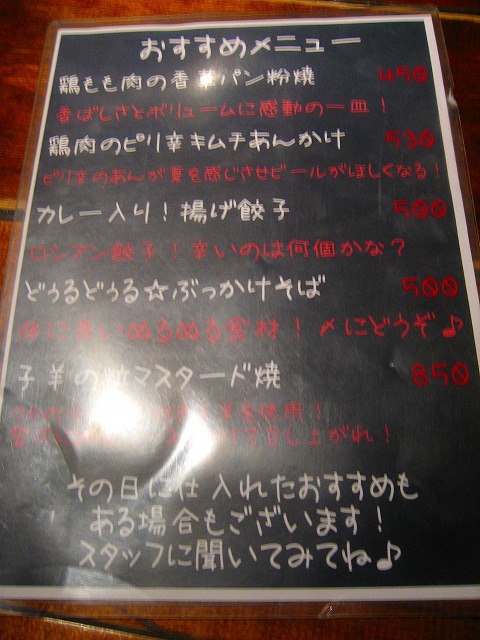 おすすめメニュー
鶏もも肉の香草パン粉焼 450
香ばしさとボリュームに感動の一皿！
鶏肉のピリ辛キムチあんかけ 530
ピリ辛のあんが夏を感じさせビールがほしくなる！
カレー入り！揚げ餃子 500
ロシアン餃子！辛いのは何個かな？
どぅるどぅる☆ぶっかけそば 500
体に良いぬるぬる食材！〆にどうぞ♪
子羊の粒マスタード焼 850
を使用！
上がれ！
その日に仕入れたおすすめも
ある場合もございます！
スタッフに聞いてみてね♪